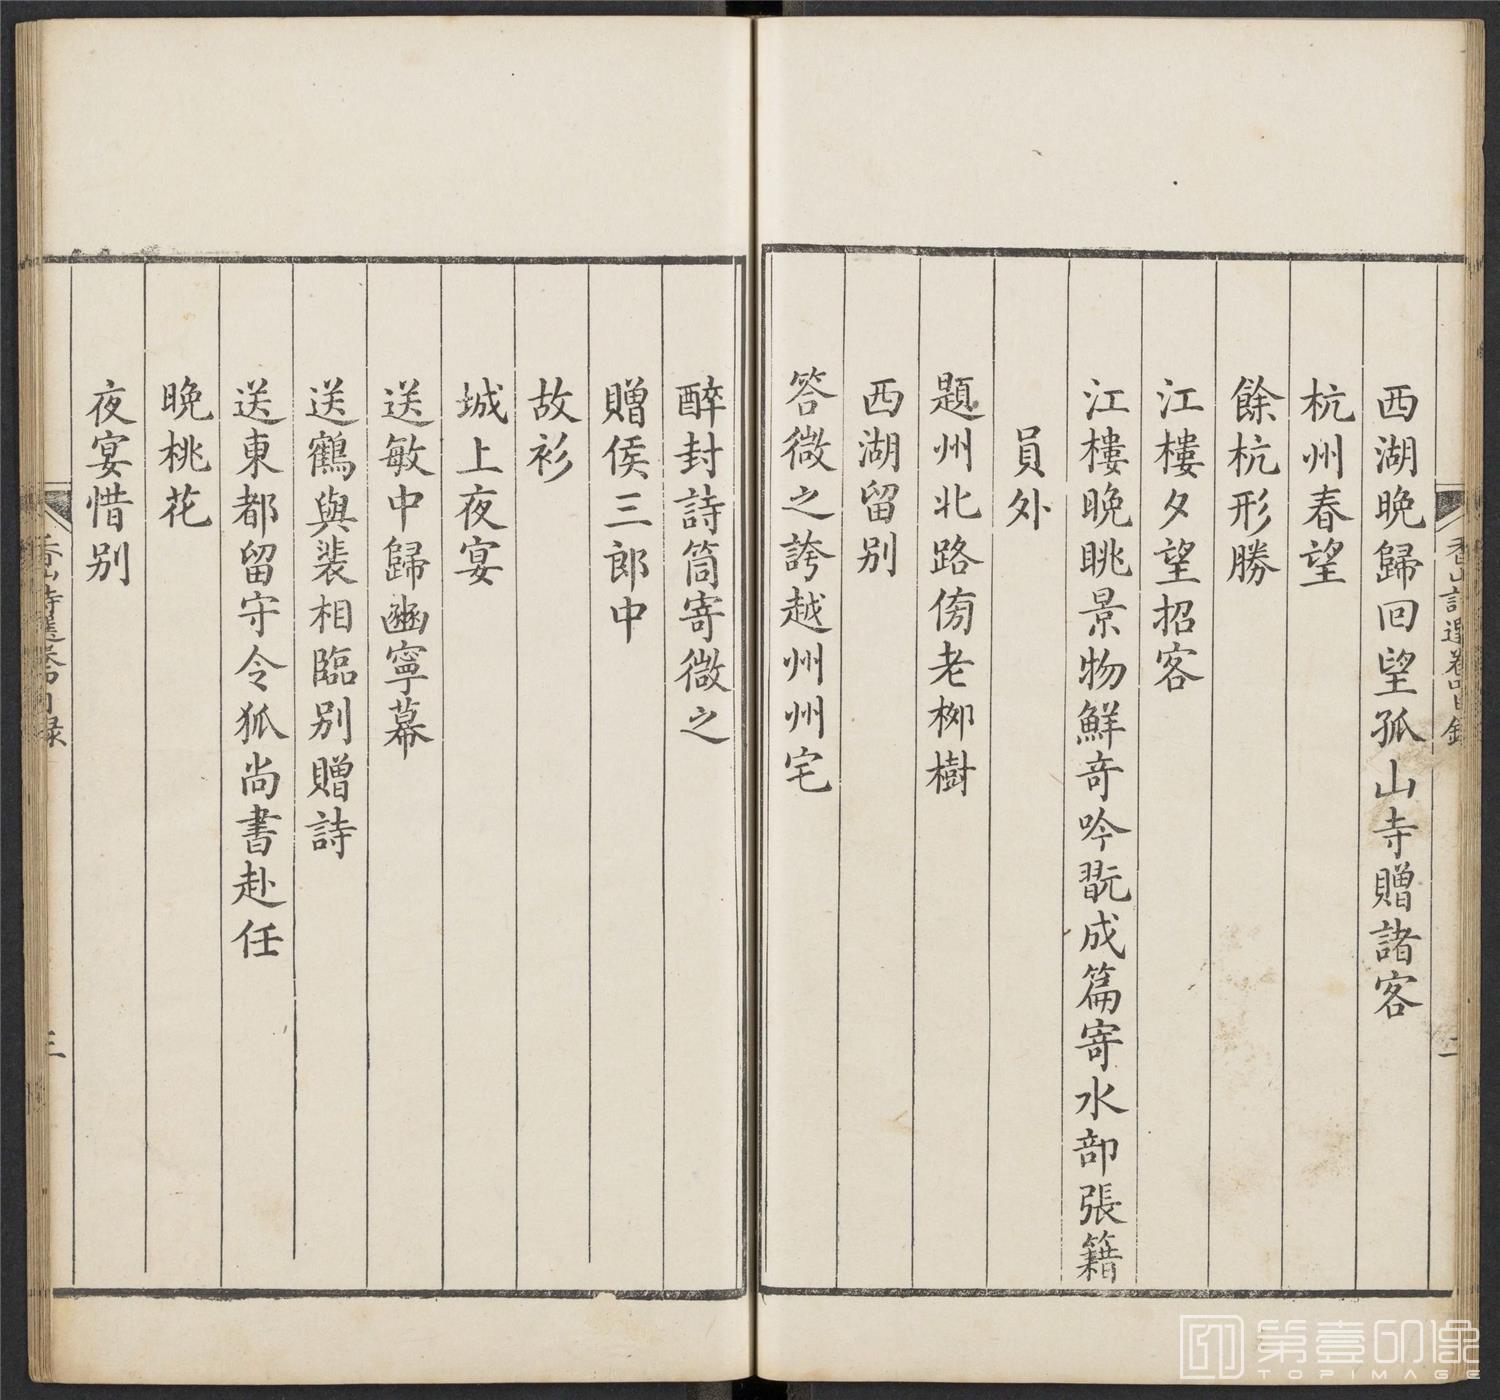 西湖晚歸回望孤山寺贈諸客
杭州春望
餘杭形勝
江樓夕望招客
江樓晚眺景物鮮奇吟翫成篇寄水部張籍
員外
題州北路傍老柳樹
西湖留別
答微之誇越州州宅
醉封詩筒寄微之
贈侯三郎中
故衫
城上夜宴
送敏中歸豳寧幕
送鶴與裴相臨別贈詩
送東都留守令狐尚書赴任
晚桃花
夜宴惜別
香山詩選卷四目録
二
香山詩選卷四目録
三
第壹印像
TOPIMAGE